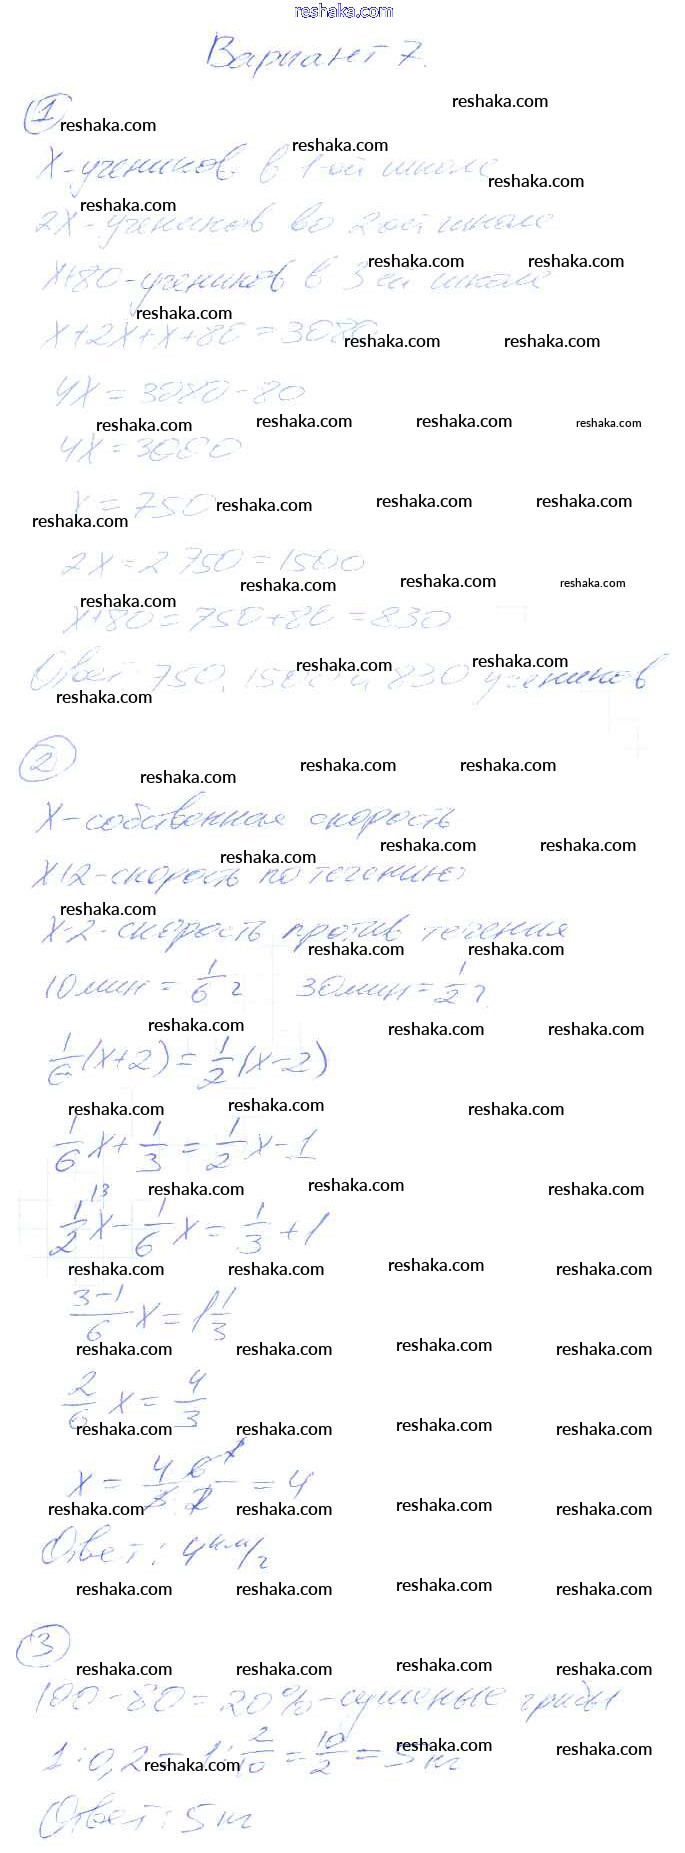 reshaka.com
Вариант 7.
1
reshaka.com
reshaka.com
reshaka.com
x - учеников в 1-ой школе
reshaka.com
reshaka.com
2x - учеников во 2ой школе
reshaka.com reshaka.com
x+80 - учеников в 3ей школе
reshaka.com
x+2x+x+80=3080
reshaka.com reshaka.com
4x=3080-80
reshaka.com reshaka.com reshaka.com reshaka.com
4x=3000
x=750
reshaka.com reshaka.com reshaka.com reshaka.com
2x=2·750=1500
reshaka.com reshaka.com reshaka.com reshaka.com
x+80=750+80=830
reshaka.com reshaka.com
Ответ: 750, 1500 и 830 учеников
reshaka.com
2
reshaka.com reshaka.com reshaka.com
x - собственная скорость
reshaka.com reshaka.com reshaka.com
x+2 - скорость по течению
reshaka.com
x-2 - скорость против течения
reshaka.com reshaka.com
10 мин = 1/6 ч 30 мин = 1/2 ч
reshaka.com reshaka.com reshaka.com
1/6(x+2)=1/2(x-2)
reshaka.com reshaka.com reshaka.com
1/6x+1/3=1/2x-1
reshaka.com reshaka.com reshaka.com
1/2x-1/6x=1/3+1
reshaka.com reshaka.com reshaka.com reshaka.com
3-1/6x=1 1/3
reshaka.com reshaka.com reshaka.com reshaka.com
2/6x=4/3
reshaka.com reshaka.com reshaka.com reshaka.com
x=4·6/3·2=4
reshaka.com reshaka.com reshaka.com reshaka.com
Ответ: 4 км/ч
reshaka.com reshaka.com reshaka.com reshaka.com
3
reshaka.com reshaka.com reshaka.com reshaka.com
100-80=20% - сушеные грибы
1:0,2=1:2/10=10/2=5 кг
reshaka.com reshaka.com reshaka.com
Ответ: 5 кг